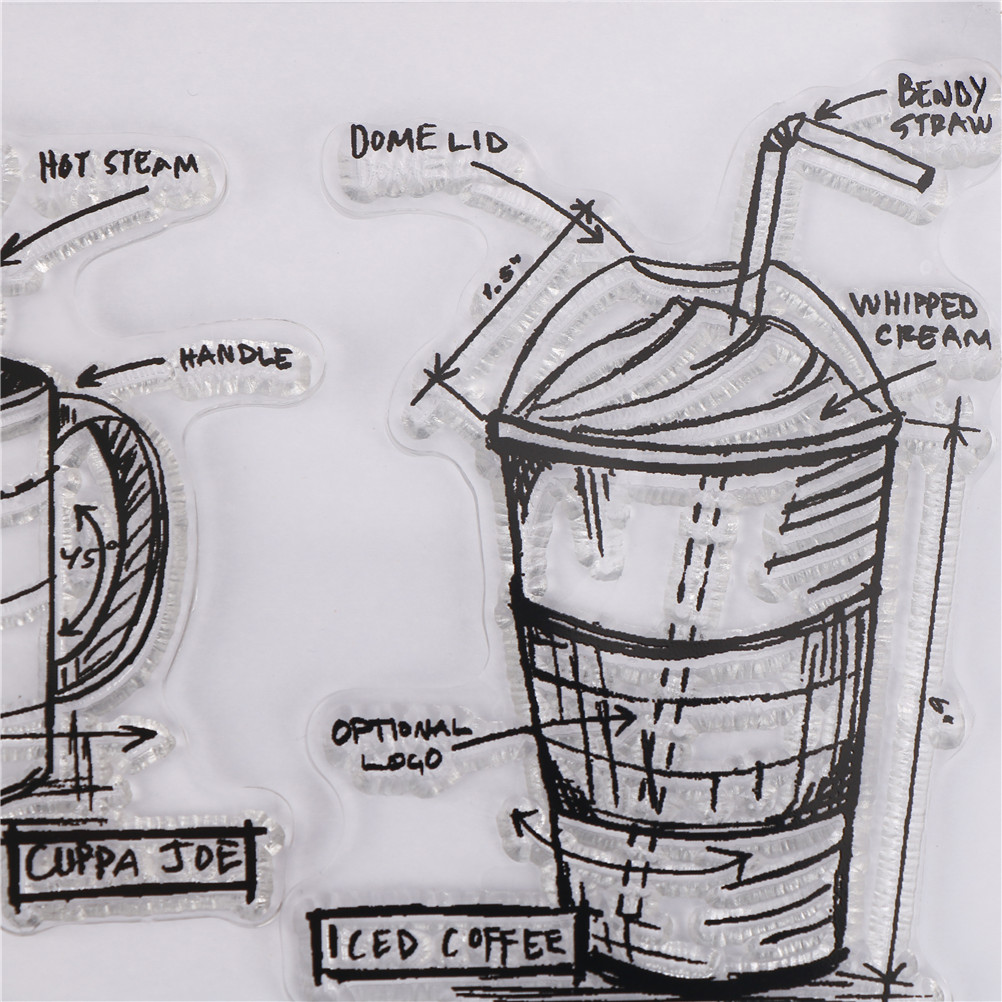 HOT STEAM
HANDLE
45°
CUPPA JOE
DOME LID
1.5"
BENDY
STRAW
WHIPPED
CREAM
OPTIONAL
LOGO
6"
ICED COFFEE